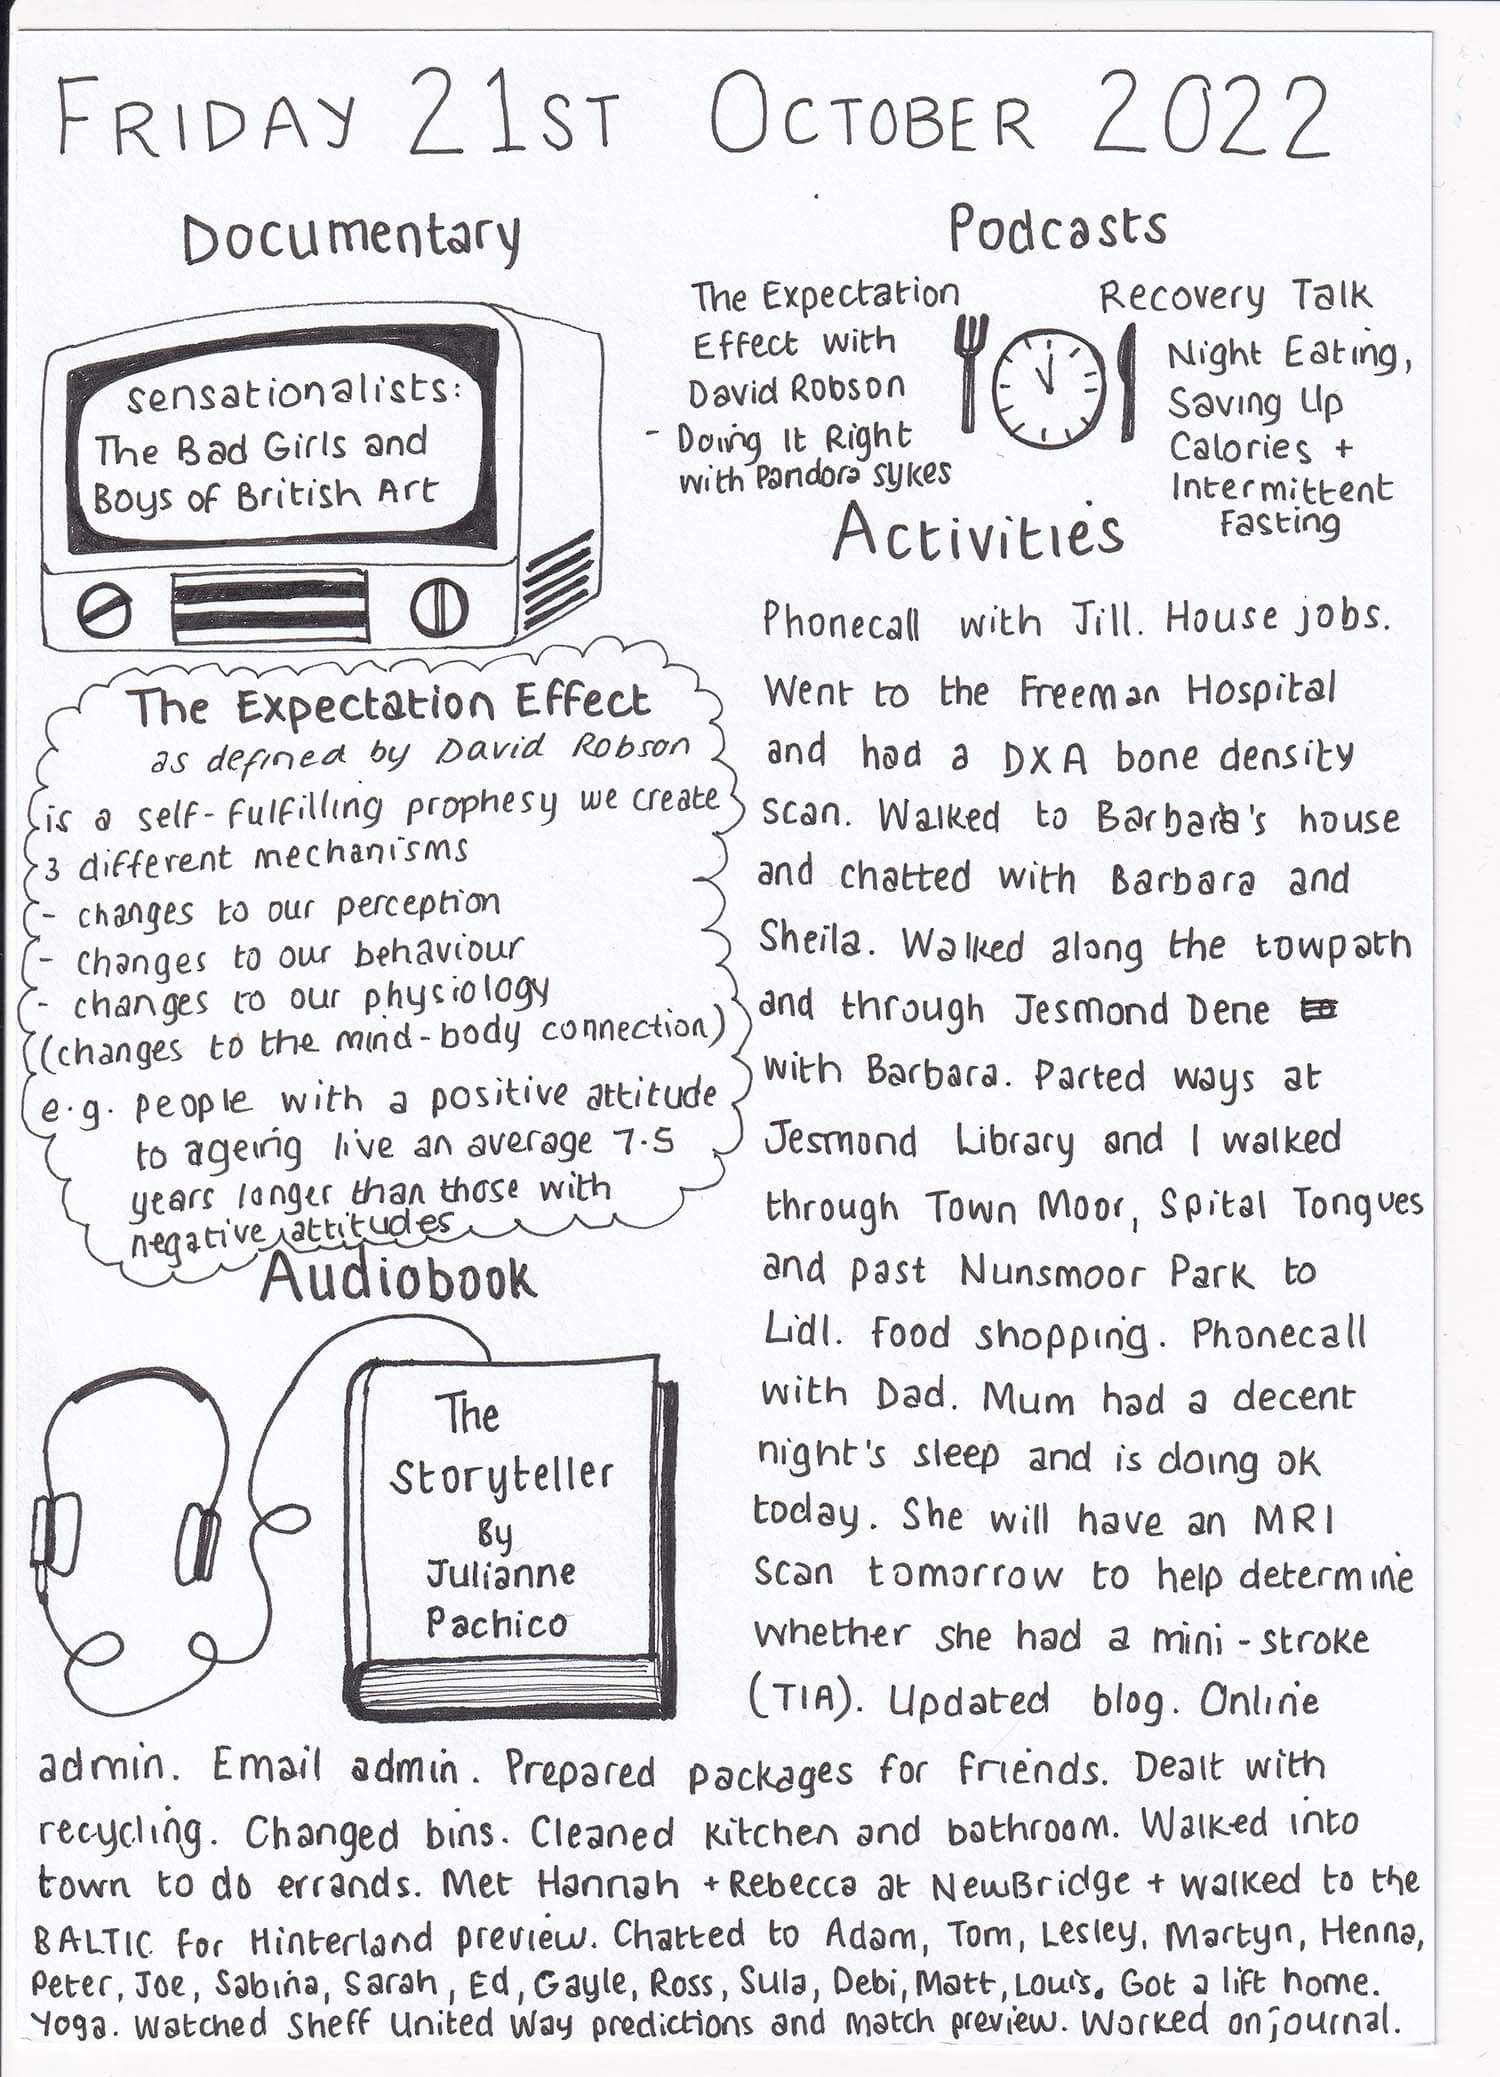 FRIDAY 21ST OCTOBER 2022
Documentary
sensationalists:
The Bad Girls and
Boys of British Art
Podcasts
The Expectation
Effect with
David Robson
- Doing It Right
with Pandora Sykes
Recovery Talk
Night Eating,
Saving Up
Calories +
Intermittent
Fasting
The Expectation Effect
as defined by David Robson
is a self-fulfilling prophesy we create
3 different mechanisms
- changes to our perception
- changes to our behaviour
- changes to our physiology
(changes to the mind-body connection)
e.g. people with a positive attitude
to ageing live an average 7.5
years longer than those with
negative attitudes
Audiobook
The
Storyteller
By
Julianne
Pachico
Activities
Phonecall with Jill. House jobs.
Went to the Freeman Hospital
and had a DXA bone density
scan. Walked to Barbara's house
and chatted with Barbara and
Sheila. Walked along the towpath
and through Jesmond Dene to
with Barbara. Parted ways at
Jesmond Library and I walked
through Town Moor, Spital Tongues
and past Nunsmoor Park to
Lidl. Food shopping. Phonecall
with Dad. Mum had a decent
night's sleep and is doing ok
today. She will have an MRI
scan tomorrow to help determine
whether she had a mini-stroke
(TIA). Updated blog. Online
admin. Email admin. Prepared packages for friends. Dealt with
recycling. Changed bins. Cleaned kitchen and bathroom. Walked into
town to do errands. Met Hannah + Rebecca at NewBridge + walked to the
BALTIC for Hinterland preview. Chatted to Adam, Tom, Lesley, Martyn, Henna,
Peter, Joe, Sabina, Sarah, Ed, Gayle, Ross, Sula, Debi, Matt, Louis. Got a lift home.
Yoga. Watched Sheff United Way predictions and match preview. Worked on journal.